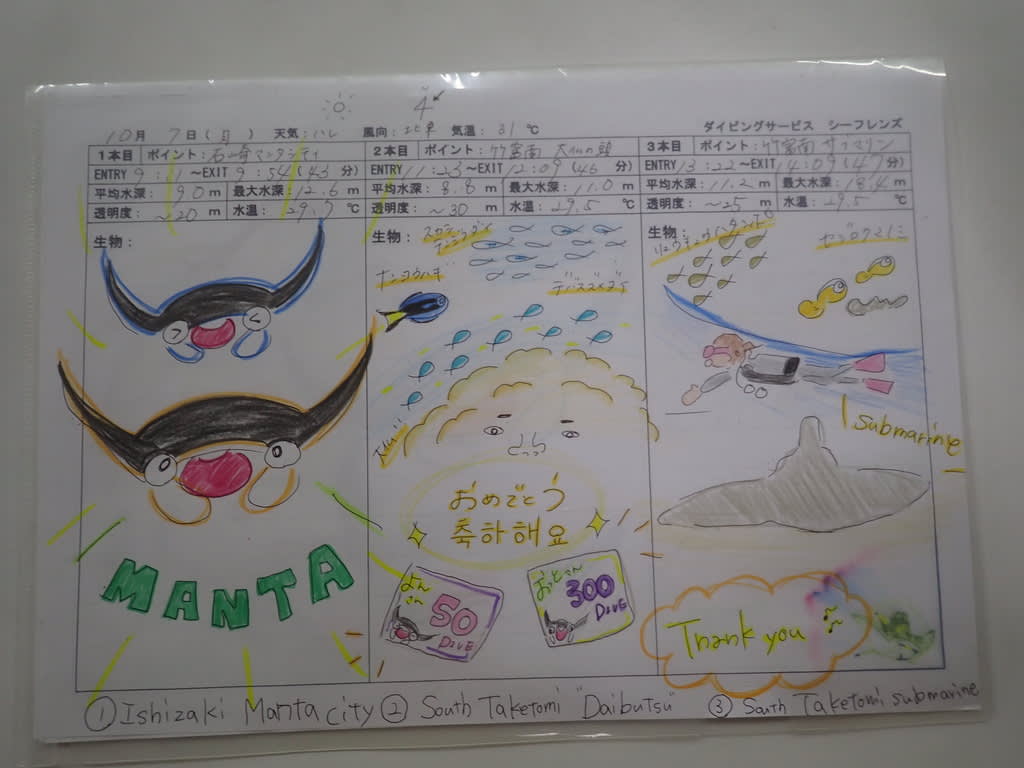 10月 7日(月) 天気:ハレ 風向:北東 気温:31℃ ダイビングサービス シーフレンズ
4
1本目 ポイント:石崎マンタシティ
ENTRY 9:11~EXIT 9:54(43分)
平均水深:9.0m 最大水深:12.6m
透明度:~20m 水温:29.7℃
生物:
MANTA
2本目 ポイント:竹富南 大仏の頭
ENTRY 11:23~EXIT 12:09(46分)
平均水深:8.8m 最大水深:11.0m
透明度:~30m 水温:29.5℃
生物:
ナンヨウハギ
デバスズメダイ
おめでとう
축하해요
50
DIVE
おっとさん
300
DIVE
3本目 ポイント:竹富南 サブマリン
ENTRY 13:22~EXIT 14:09(47分)
平均水深:11.2m 最大水深:18.4m
透明度:~25m 水温:29.5℃
生物:
submarine
Thank you
① Ishizaki Manta city ② South Taketomi "Daibutsu" ③ South Taketomi submarine